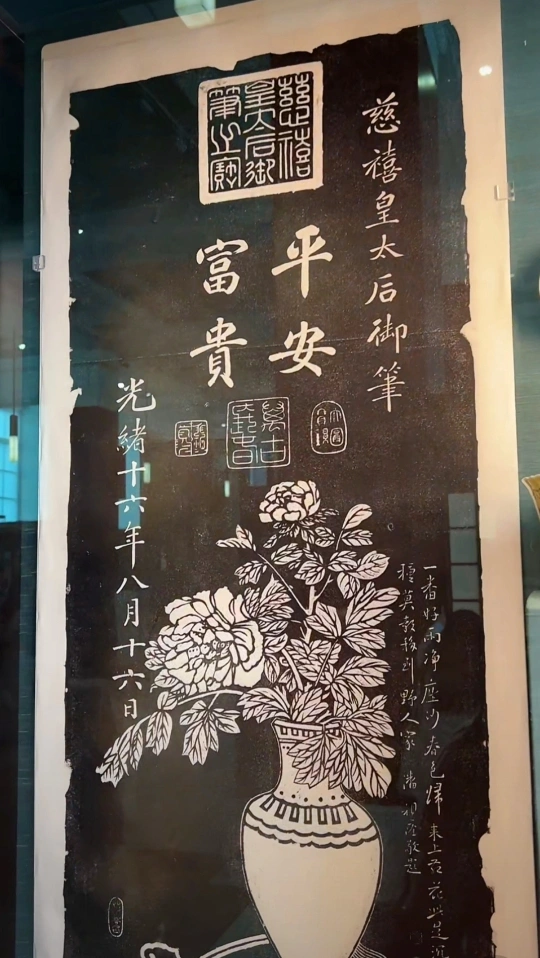 慈禧
皇太后御
筆之寶
慈禧皇太后御筆
平安
富貴
光緒十六年八月十六日
一番好雨淨塵沙春色歸來上苑花此是
種莫教移到野人家 潘祖蔭敬題